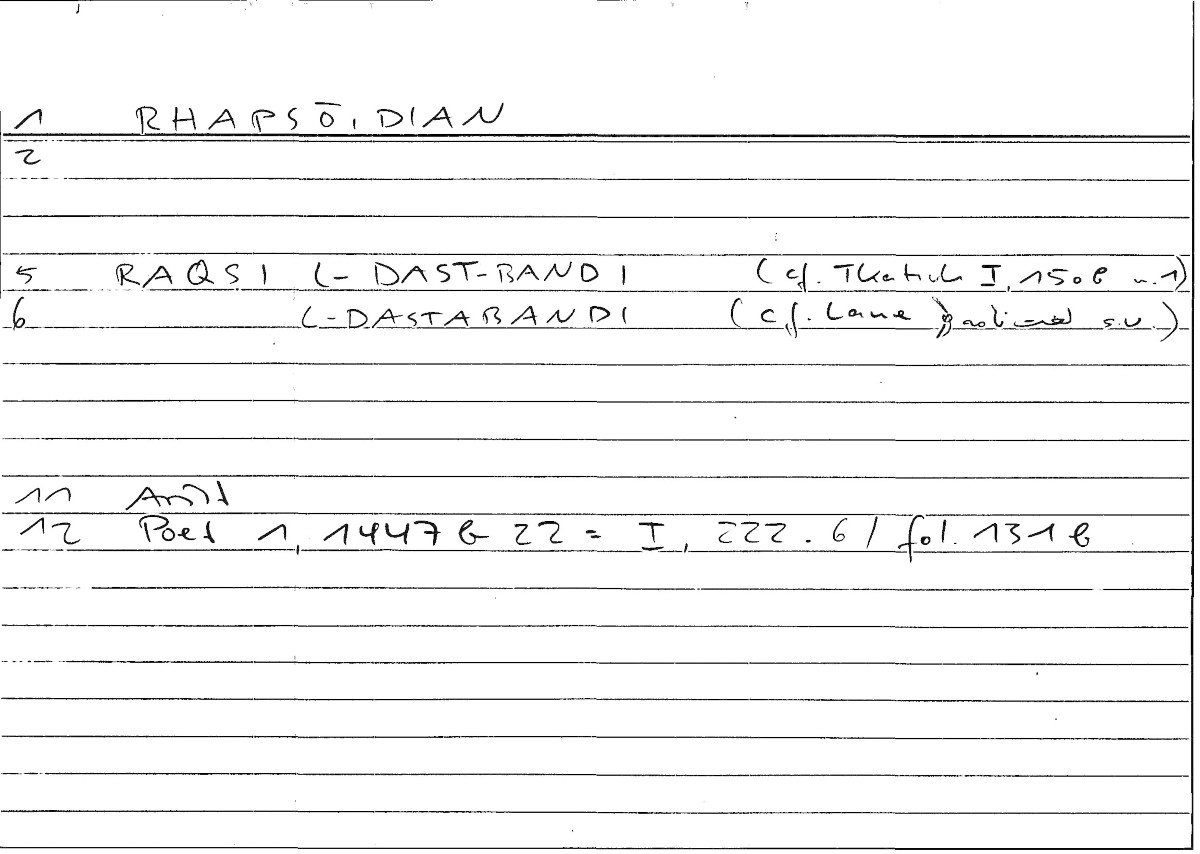 1 RHAPSŌ,DIAN
2
5 RAQSI L-DAST-BANDI (cf. Tkatsch I, 150b n.1)
6 L-DASTABANDI (cf. Lane s.v.)
11 Arist
12 Poet 1, 1447b22 = I, 222.6/fol. 131b